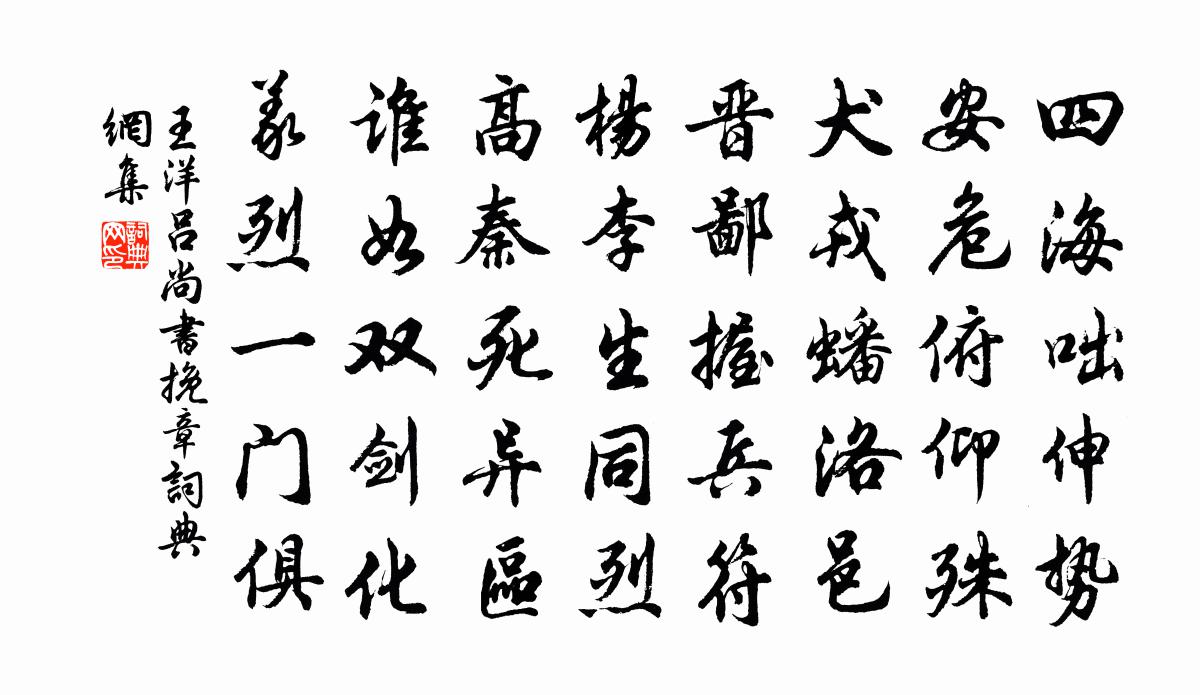 四海咄伸势
安危俯仰殊
犬戎蟠洛邑
晋鄙握兵符
杨李生同烈
高秦死异區
谁如双剑化
义烈一门俱
王洋吕尚書挽章詞典
網集
詞典
网印